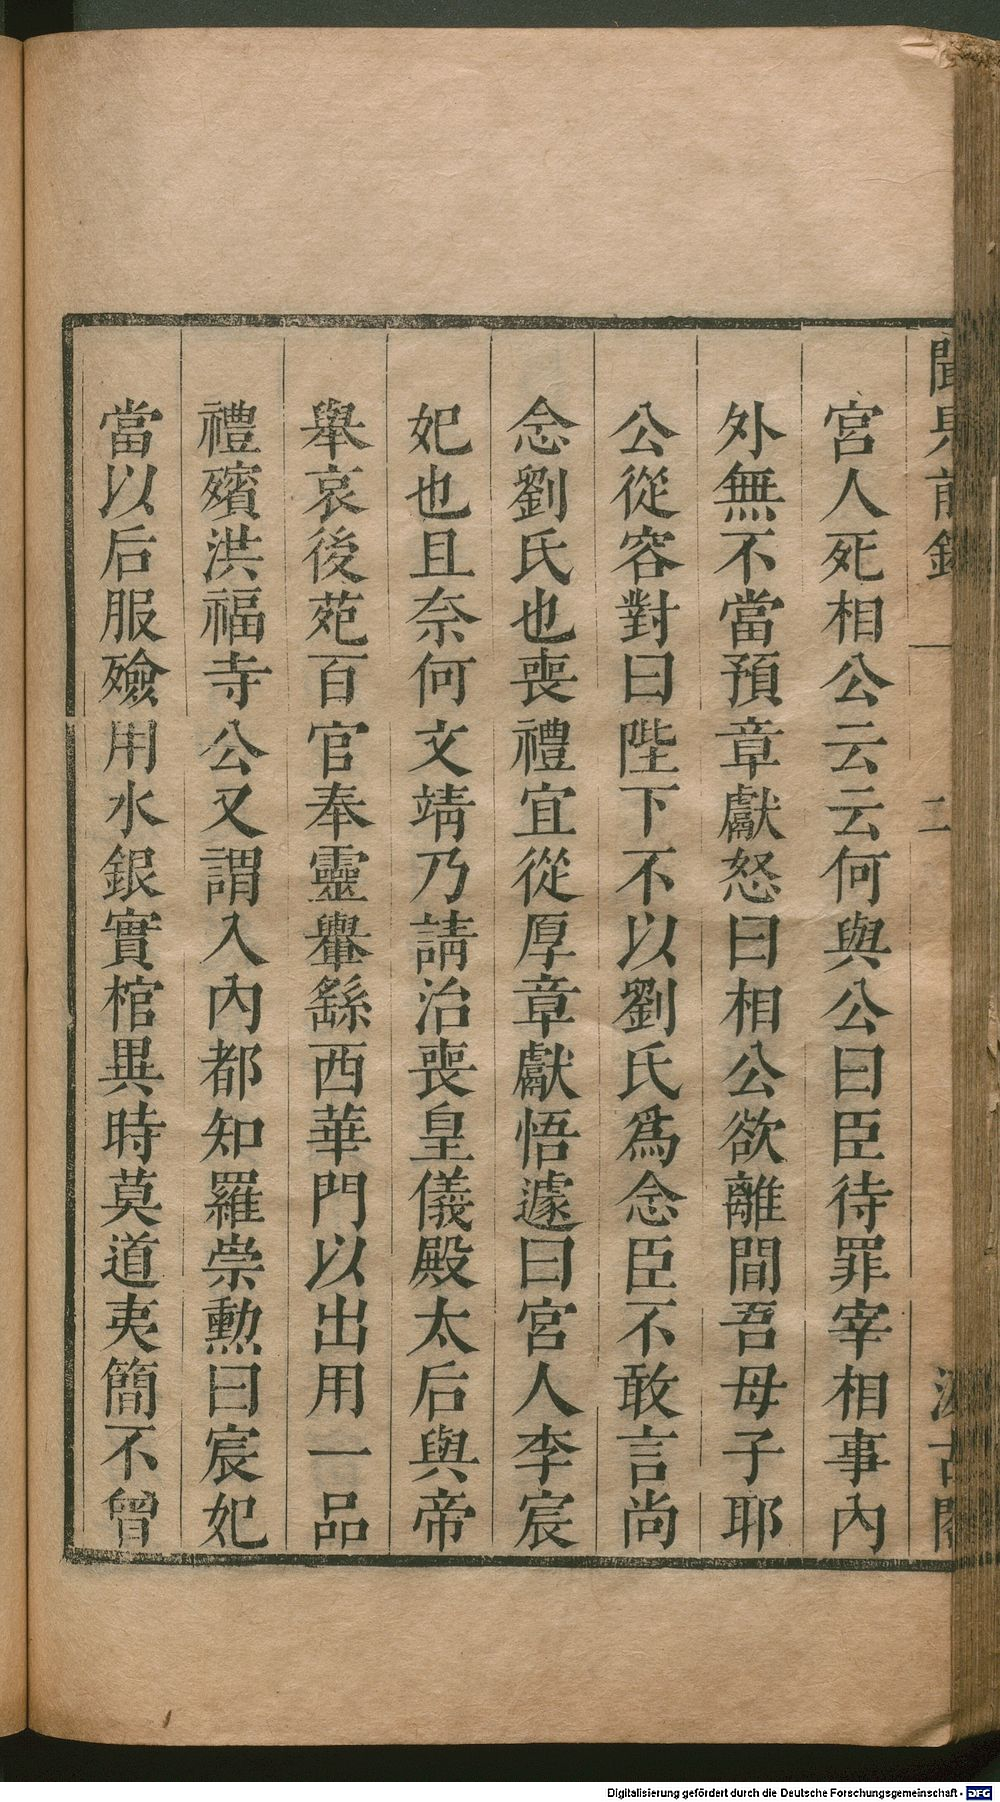 聞見前錄 一 二 汲古閣
宮人死相公云云何與公曰臣待罪宰相事內
外無不當預章獻怒曰相公欲離間吾母子耶
公從容對曰陛下不以劉氏爲念臣不敢言尚
念劉氏也喪禮宜從厚章獻悟遽曰宮人李宸
妃也且奈何文靖乃請治喪皇儀殿太后與帝
舉哀後苑百官奉靈轝繇西華門以出用一品
禮殯洪福寺公又謂入內都知羅崇勲曰宸妃
當以后服殮用水銀實棺異時莫道夷簡不曾
Digitalisierung gefördert durch die Deutsche Forschungsgemeinschaft - DFG